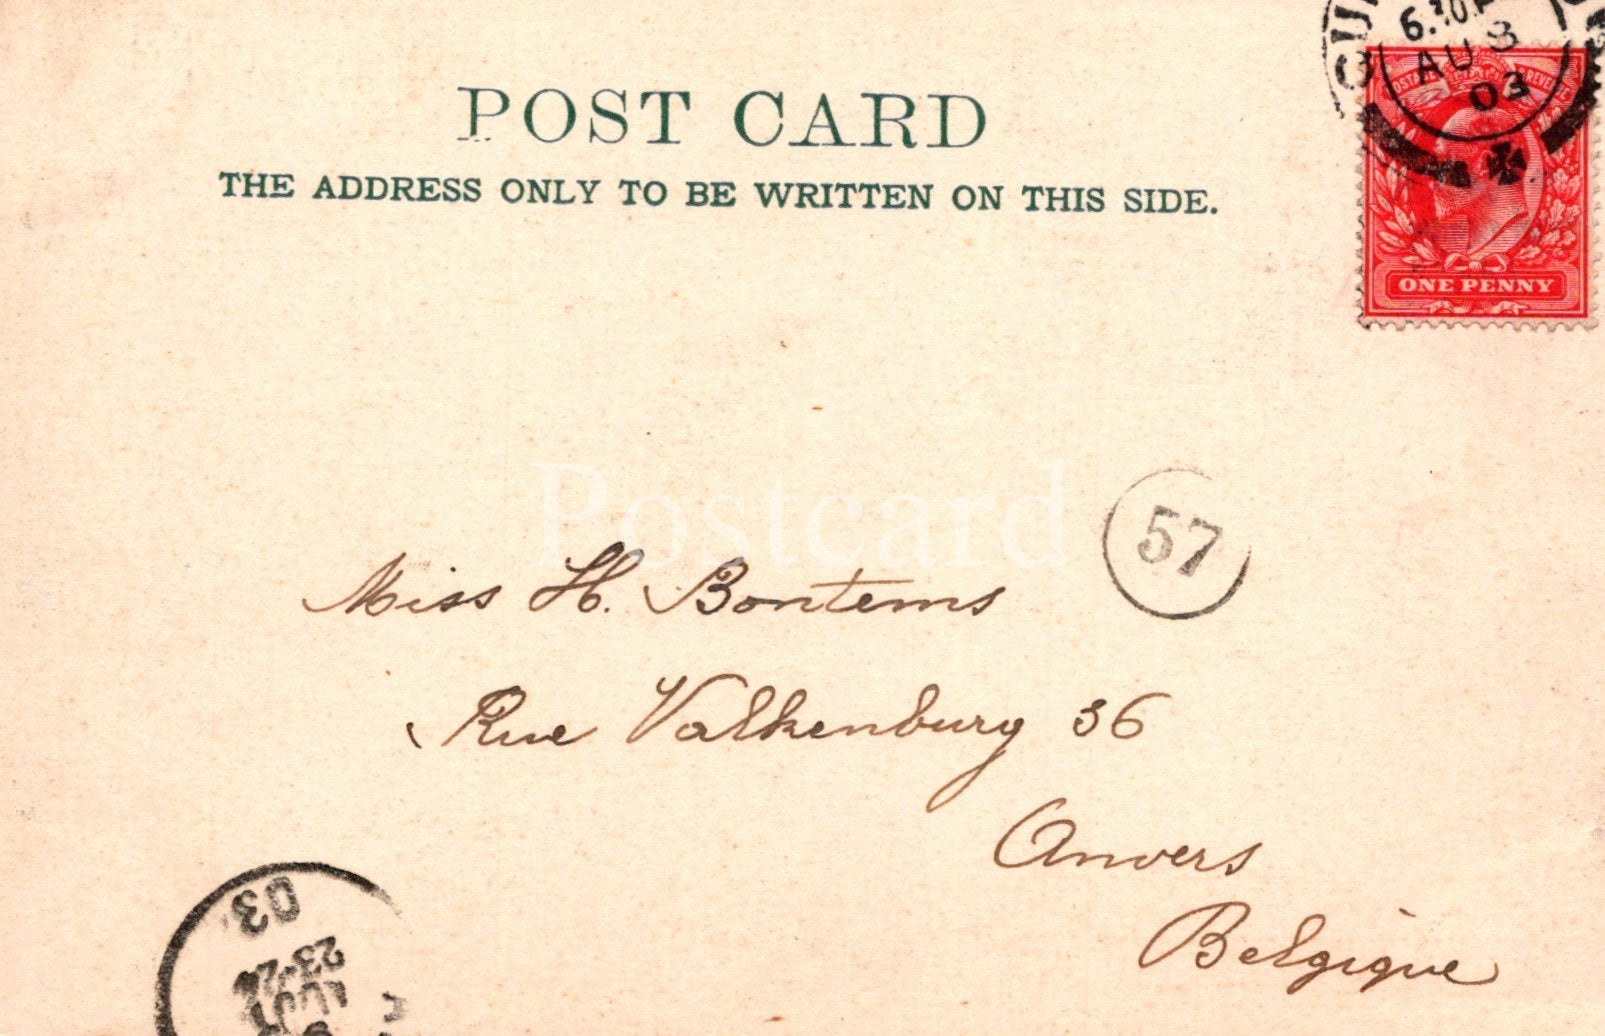 POST CARD
THE ADDRESS ONLY TO BE WRITTEN ON THIS SIDE.
6.30
AU 3
03
ONE PENNY
Postcard
57
Miss H. Bontems
Rue Valkenburg 36
Anvers
Belgique
03
23-24
AOUT